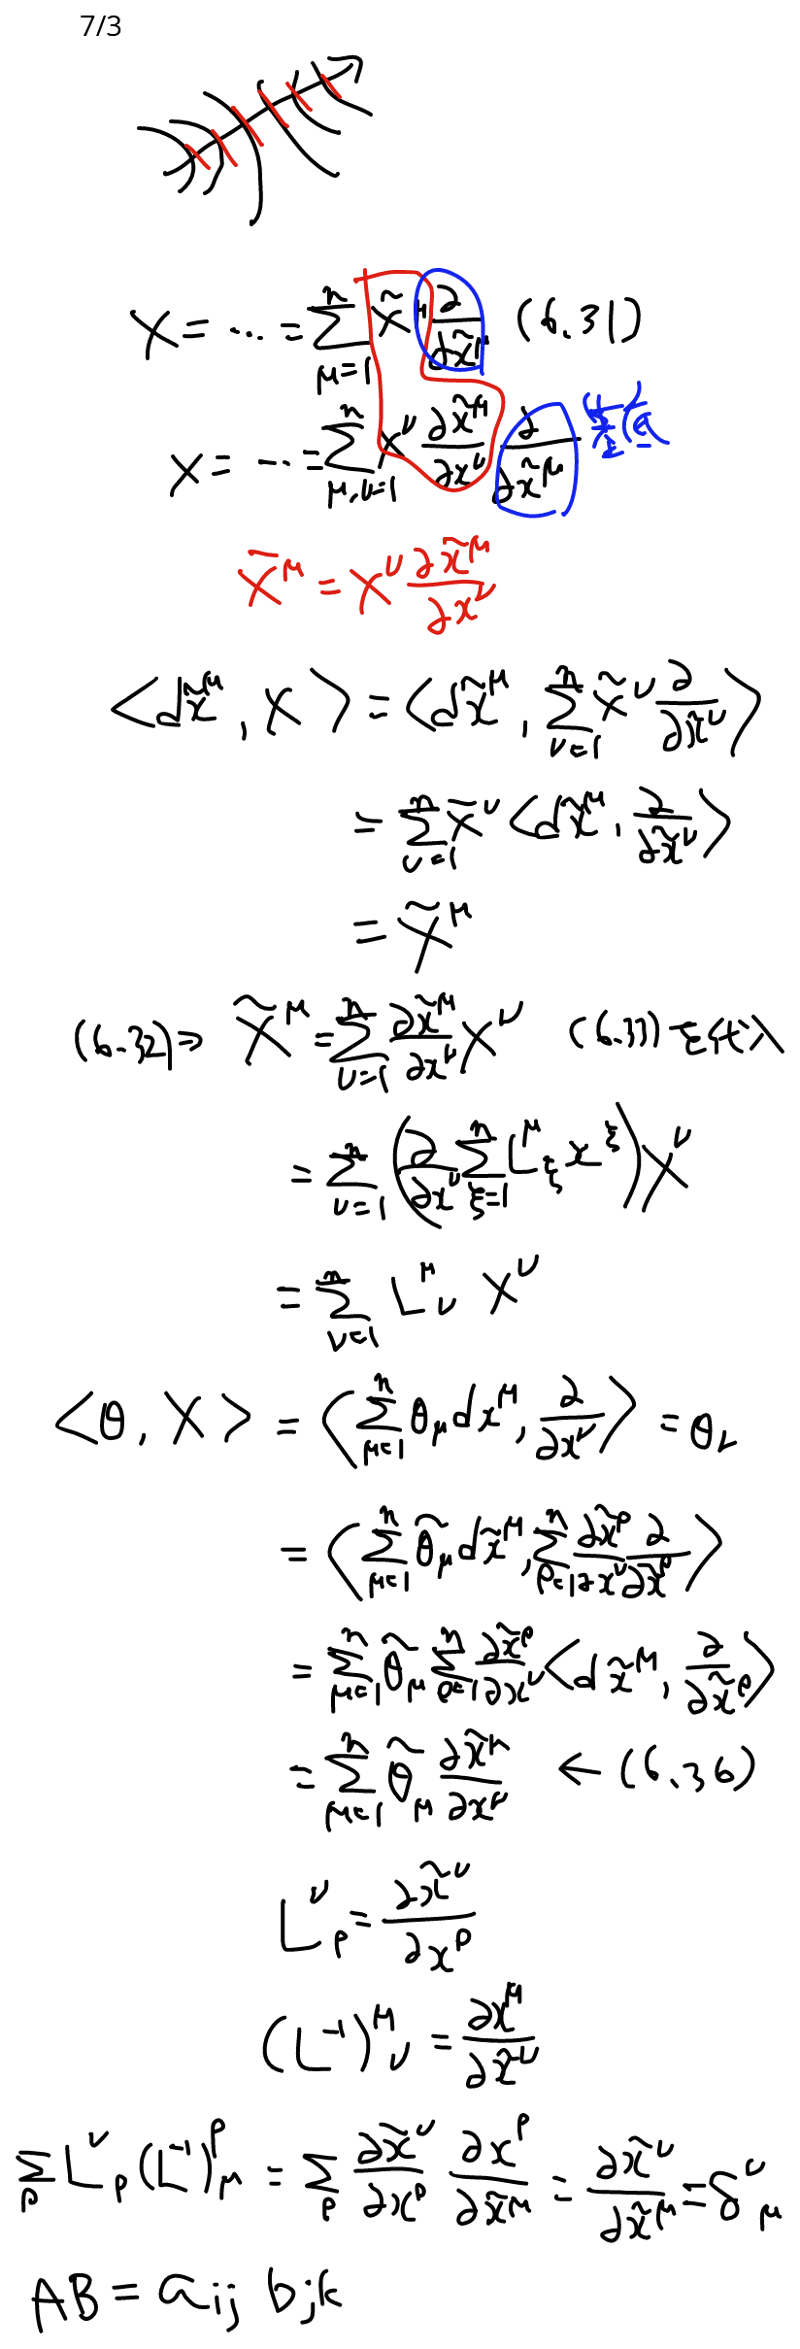 7/3
X = ... = \sum_{μ=1}^{n} \tilde{X}^μ \frac{∂}{∂\tilde{x}^μ} (6.31)
X = ... = \sum_{μ,ν=1}^{n} X^ν \frac{∂\tilde{x}^μ}{∂x^ν} \frac{∂}{∂\tilde{x}^μ} 基底
\tilde{X}^μ = X^ν \frac{∂\tilde{x}^μ}{∂x^ν}
<d\tilde{x}^μ, X> = <d\tilde{x}^μ, \sum_{ν=1}^{n} \tilde{X}^ν \frac{∂}{∂\tilde{x}^ν}>
= \sum_{ν=1}^{n} \tilde{X}^ν <d\tilde{x}^μ, \frac{∂}{∂\tilde{x}^ν}>
= \tilde{X}^μ
(6.32)⇒ \tilde{X}^μ = \sum_{ν=1}^{n} \frac{∂\tilde{x}^μ}{∂x^ν} X^ν (6.33)を代入
= \sum_{ν=1}^{n} (\frac{∂}{∂x^ν} \sum_{ξ=1}^{n} L^μ_ξ x^ξ) X^ν
= \sum_{ν=1}^{n} L^μ_ν X^ν
<θ, X> = <\sum_{μ=1}^{n} θ_μ dx^μ, \frac{∂}{∂x^ν}> = θ_ν
= <\sum_{μ=1}^{n} \tilde{θ}_μ d\tilde{x}^μ, \sum_{ρ=1}^{n} \frac{∂\tilde{x}^ρ}{∂x^ν} \frac{∂}{∂\tilde{x}^ρ}>
= \sum_{μ=1}^{n} \tilde{θ}_μ \sum_{ρ=1}^{n} \frac{∂\tilde{x}^ρ}{∂x^ν} <d\tilde{x}^μ, \frac{∂}{∂\tilde{x}^ρ}>
= \sum_{μ=1}^{n} \tilde{θ}_μ \frac{∂\tilde{x}^μ}{∂x^ν} ← (6.36)
L^ν_ρ = \frac{∂\tilde{x}^ν}{∂x^ρ}
(L^{-1})^μ_ν = \frac{∂x^μ}{∂\tilde{x}^ν}
\sum_ρ L^ν_ρ (L^{-1})^ρ_μ = \sum_ρ \frac{∂\tilde{x}^ν}{∂x^ρ} \frac{∂x^ρ}{∂\tilde{x}^μ} = \frac{∂\tilde{x}^ν}{∂\tilde{x}^μ} = δ^ν_μ
AB = a_{ij} b_{jk}